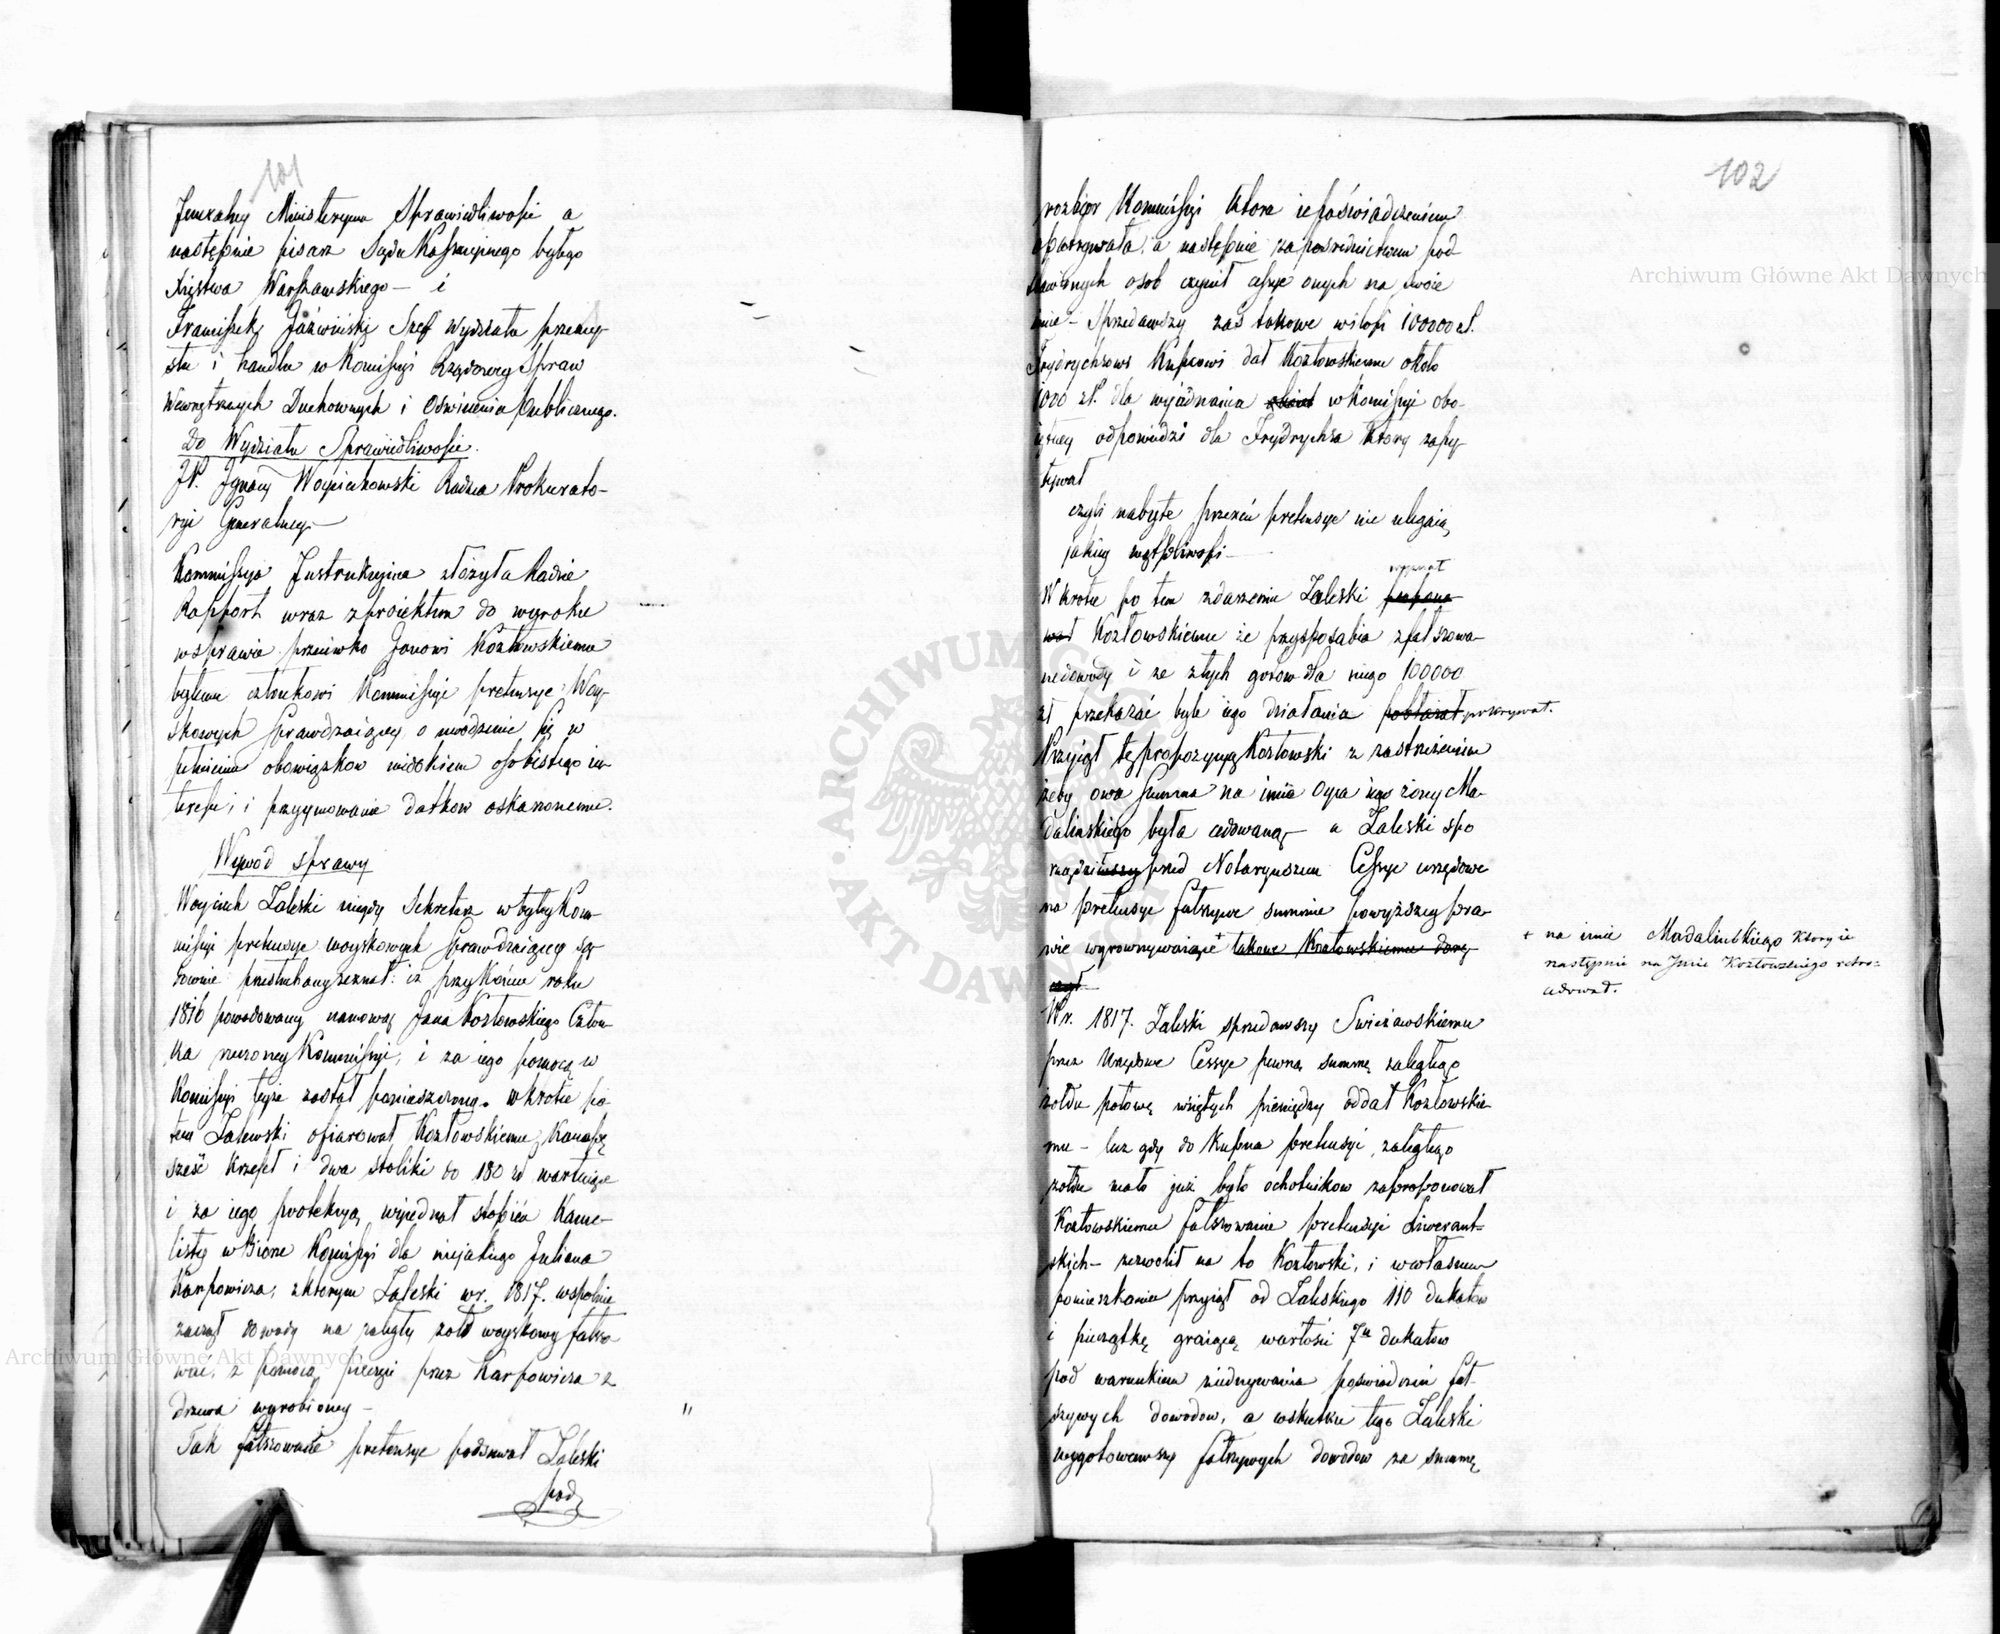 101
Jeneralny Ministeryum Sprawiedliwości a
następnie pisarz Sądu Kassacyinego byłego
Xięstwa Warszawskiego — i
Franciszek Jaźwiński Szef Wydziału przemy-
słu i handlu w Kommissyi Rządowey Spraw
Wewnętrznych Duchownych i Oświecenia Publicznego.
Do Wydziału Sprawiedliwości.
JP. Ignacy Woyciechowski Radca Prokurato-
ryi Generalney —
Kommissya Instrukcyina złożyła Radzie
Rapport wraz z proiektem do wyroku
w sprawie przeciwko Janowi Kozłowskiemu
byłemu członkowi Kommissyi pretensye Woy-
skowych Sprawdzaiącey o uwodzenie się w
pełnieniu obowiązkow widokiem osobistego in-
teresu, i przyymowanie datkow oskarzonemu.
Wywod sprawy
Woyciech Zaleski niegdy Sekretarz w byłey Kom-
missyi pretensye woyskowych Sprawdzaiącey są-
downie przesłuchany zeznał: iż przy końcu roku
1816 powodowany namową Jana Kozłowskiego Człon-
ka rzeczoney Kommissyi, i za iego pomocą w
Komissyi teyże został pomieszczony. wkrotce po
tem Zalewski ofiarował Kozłowskiemu Kanapę
sześć krzeseł i dwa stoliki do 180 zł wartuiące
i za iego protekcyą wyjednał stopień Kance-
listy w Biorze Komissyi dla niejakiego Juliana
Karpowicza, z ktorym Zaleski w r. 1817. wspolnie
zaczął dowody na zaległy żołd woyskowy fałszo
wać, z pomocą pieczęci przez Karpowicza z
drzewa wyrobioney —
Tak fałszowane pretensye podsuwał Zaleski
pod
102
rozbior Kommissyi ktora ie poświadczeniem
opatrywała, a następnie za pośrednictwem pod
stawionych osob czynił cessye onych na swoie
imie — Sprzedawszy zaś takowe w ilości 100000 zł.
Frydrychsowi Kupcowi dał Kozłowskiemu około
1000 zł. dla wyjednania w Komissyi obo-
iętney odpowiedzi dla Frydrychsa ktory zapy-
tywał
czyli nabyte przezeń pretensye nie ulegaią
jakiey wątpliwości —
W krotce po tem zdarzeniu Zaleski propono
wał Kozłowskiemu że przysposabia zfałszowa-
ne dowody i ze złych gotow dla niego 100000
zł przekazać byle iego działania pobłażał pokrywał.
Przyiął tę propozycyą Kozłowski z zastrzeżeniem
żeby owa summa na imie Oyca iego żony Ma-
dalinskiego była cedowaną — a Zaleski spo
rządziwszy przed Notaryuszem Cessye urzędowe
na pretensye fałszywe summie powyższey pra-
wie wyrownywaiące + takowe Kozłowskiemu dorę
czył —
+ na imie Madalinskiego ktory ie
następnie na Imie Kozłowskiego retro-
cedował.
W r. 1817. Zaleski sprzedawszy Swieżawskiemu
przez Urzędowe Cessye pewną summę zaległego
żołdu połowę wziętych pieniędzy oddał Kozłowskie
mu — lecz gdy do kupna pretensyi zaległego
żołdu mało już było ochotnikow zaproponował
Kozłowskiemu fałszowanie pretensyi liwerant-
skich — zezwolił na to Kozłowski, i w własnem
pomieszkaniu przyiął od Zaleskiego 110 dukatow
i pieczątkę graiącą wartości 7u dukatow
pod warunkiem ziednywania poświadczeń fał-
szywych dowodow, a wskutku tego Zaleski
wygotowawszy fałszywych dowodow za summę
Archiwum Główne Akt Dawnych
Archiwum Główne Akt Dawnych